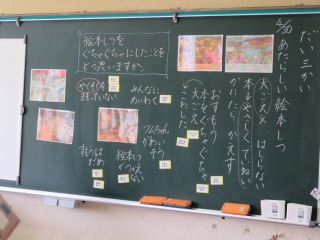 だい三かい
4/30 あたらしい絵本しつ
大ごえ× はしらない
本をやさしくていねい
かりたら かえす
絵本しつを
ぐちゃぐちゃにしたことを
どう思いますか。
おすもう
本をぐちゃぐちゃ
大ごえ
こわした
みんなに
めいわく
やくそくを
まもっていない
ツムちゃん
かわい
そう
絵本しつ
つかえない
すもうは
だめ